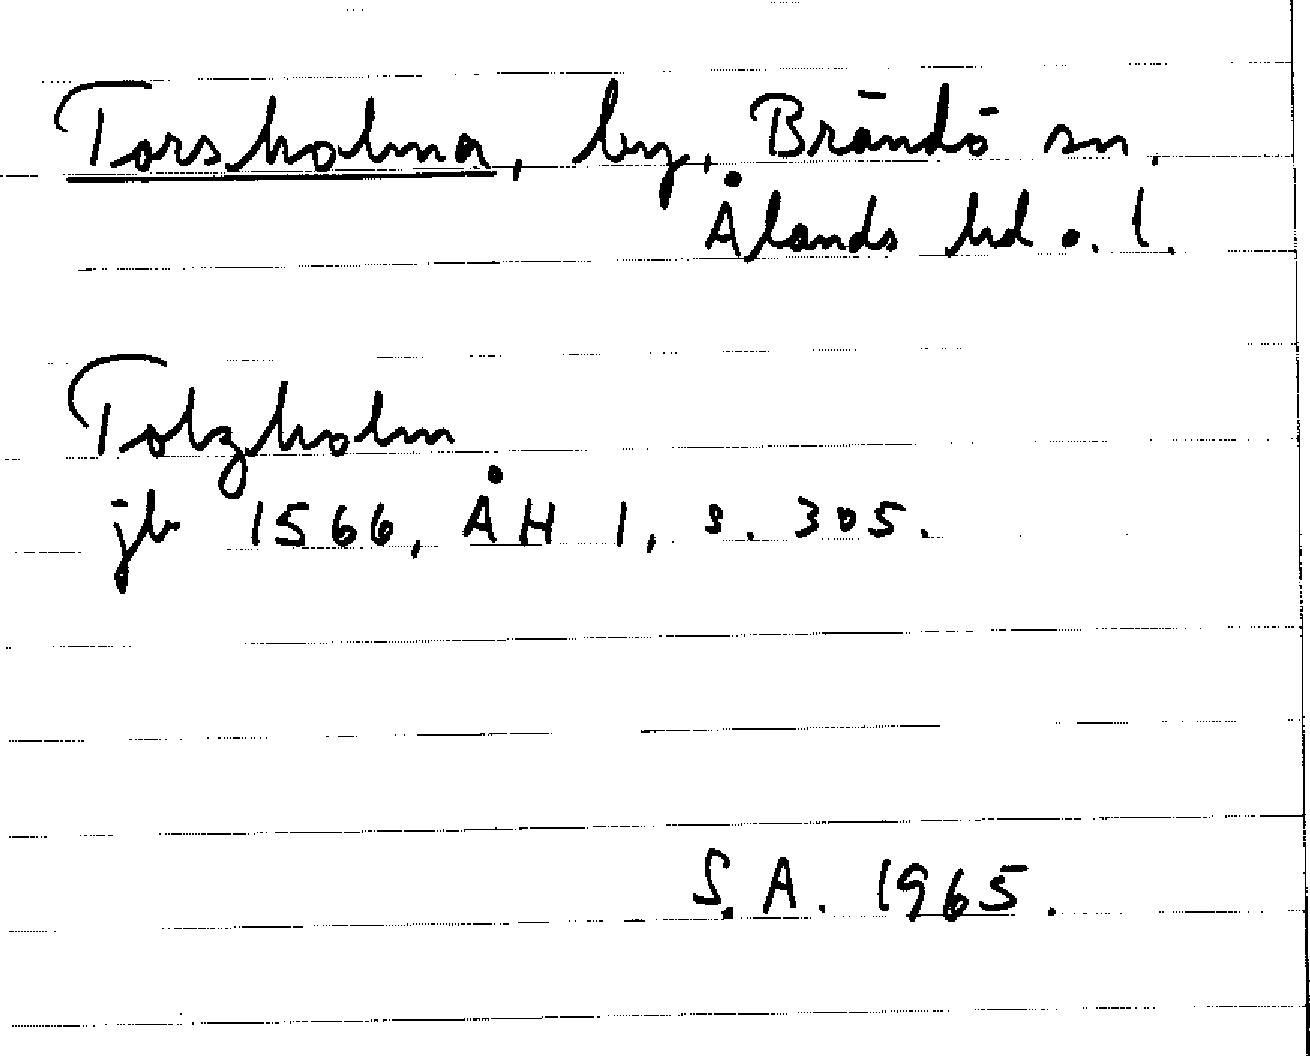 Torsholma, by, Brändö sn.
Ålands hd o. l.
Tolzholm
jb 1566, ÅH 1, s. 305.
S.A. 1965.